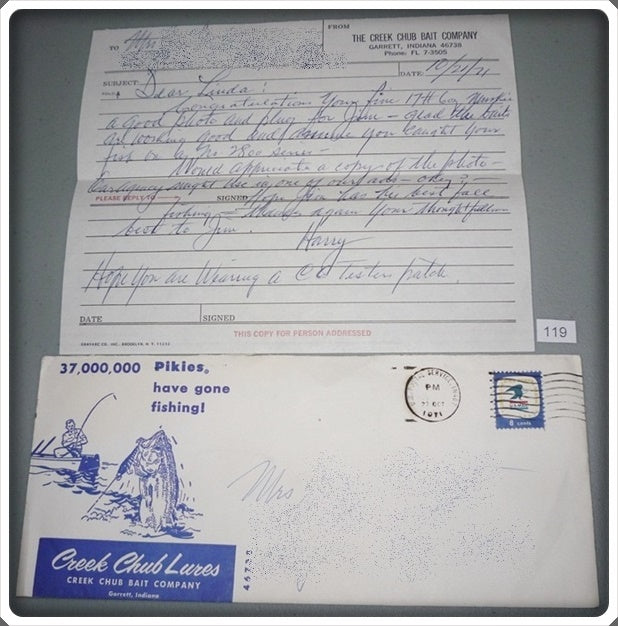 FROM
THE CREEK CHUB BAIT COMPANY
GARRETT, INDIANA 46738
Phone: FL 7-3505
TO Mrs
SUBJECT:
DATE: 10/21/71
FOLD
Dear Linda!
Congratulations Your fine 17# 6oz Muskie
a Good photo and plug for Jim - glad the baits
are working Good and you caught your
first on No series -
Would appreciate a copy of the photo -
our agency might use in one of our ads - okey? -
PLEASE REPLY TO
SIGNED
Hope Jim has his best
fishing - thanks again Your thoughtfullness
best to Jim.
Harry
Hope You are Wearing a CC Testers patch.
DATE
SIGNED
THIS COPY FOR PERSON ADDRESSED
GRAYARC CO., INC., BROOKLYN, N. Y. 11232
119
37,000,000 Pikies,
have gone
fishing!
PM
OCT
1971
8 cents
Mrs
Creek Chub Lures
CREEK CHUB BAIT COMPANY
Garrett, Indiana
46738